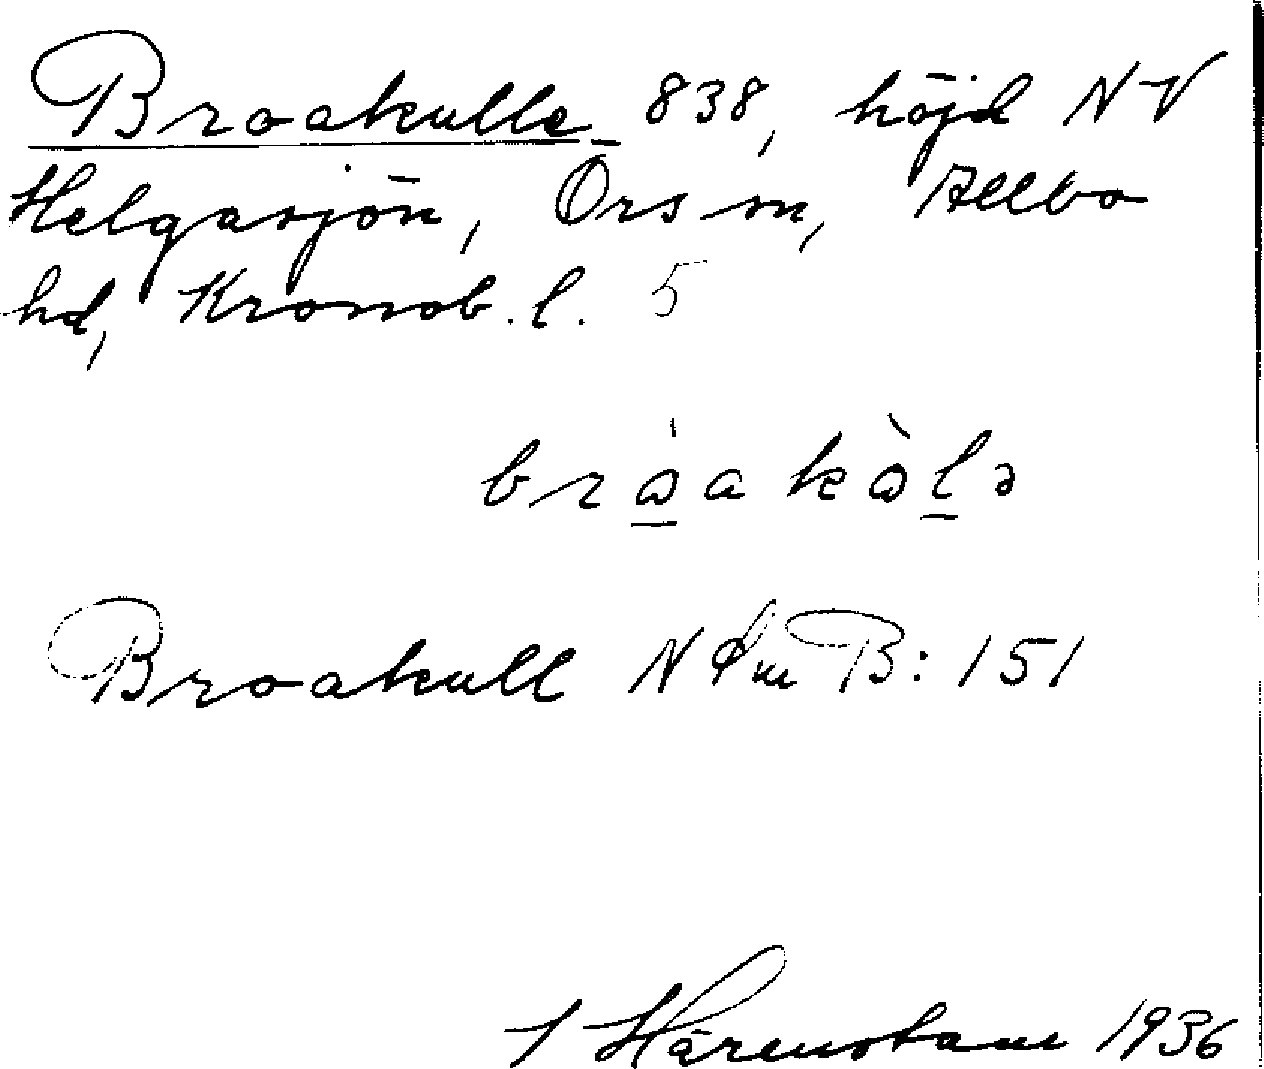 Broakulle 838, höjd NV
Helgasjön, Örs sn, Allbo
hd, Kronob. l. 5
bròakòlə
Broakull N B: 151
Härenstam 1936